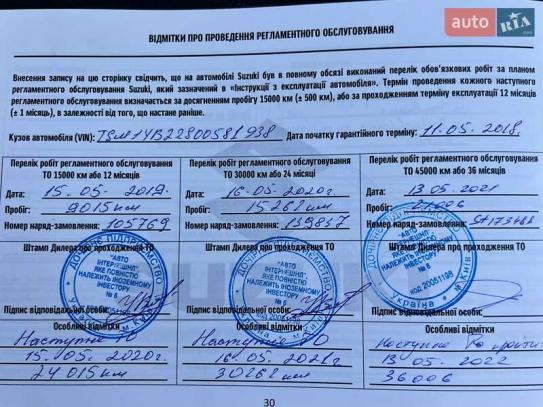 auto RIA
ВІДМІТКИ ПРО ПРОВЕДЕННЯ РЕГЛАМЕНТНОГО ОБСЛУГОВУВАННЯ
Внесення запису на цю сторінку свідчить, що на автомобілі Suzuki був в повному обсязі виконаний перелік обов'язкових робіт за планом
регламентного обслуговування Suzuki, який зазначений в «Інструкції з експлуатації автомобіля». Термін проведення кожного наступного
регламентного обслуговування визначається за досягненням пробігу 15000 км (± 500 км), або за проходженням терміну експлуатації 12 місяців
(± 1 місяць), в залежності від того, що настане раніше.
Кузов автомобіля (VIN): TSM1YB22S00581938 Дата початку гарантійного терміну: 11.05.2018
Перелік робіт регламентного обслуговування
ТО 15000 км або 12 місяців
Дата: 15.05.2019.
Пробіг: 9015 км
Номер наряд-замовлення: 105769
Штамп Дилера про проходження ТО
ДОЧІРНЄ ПІДПРИЄМСТВО
"АВТО
ІНТЕРНЕШНЛ"
ЯКЕ ПОВНІСТЮ
НАЛЕЖИТЬ ІНОЗЕМНОМУ
ІНВЕСТОРУ
№ 6
Підпис відповідальної особи:
Особливі відмітки
Наступне ТО
15.05.2020г.
24015 км
Перелік робіт регламентного обслуговування
ТО 30000 км або 24 місяці
Дата: 16.05.2020г.
Пробіг: 15262 км
Номер наряд-замовлення: 139837
Штамп Дилера про проходження ТО
"АВТО
ІНТЕРНЕШНЛ"
ЯКЕ ПОВНІСТЮ
НАЛЕЖИТЬ ІНОЗЕМНОМУ
ІНВЕСТОРУ
№ 6
Підпис відповідальної особи:
Особливі відмітки
Наступне ТО
16.05.2021г.
30262 км
Перелік робіт регламентного обслуговування
ТО 45000 км або 36 місяців
Дата: 13.05.2021
Пробіг: 21006
Номер наряд-замовлення:
Штамп Дилера про проходження ТО
"АВТО
ІНТЕРНЕШНЛ"
ЯКЕ ПОВНІСТЮ
НАЛЕЖИТЬ ІНОЗЕМНОМУ
ІНВЕСТОРУ
№ 6
код 20051198
Україна м.Київ
Підпис відповідальної особи:
Особливі відмітки
Наступне ТО пройти:
13.05.2022
36006
30